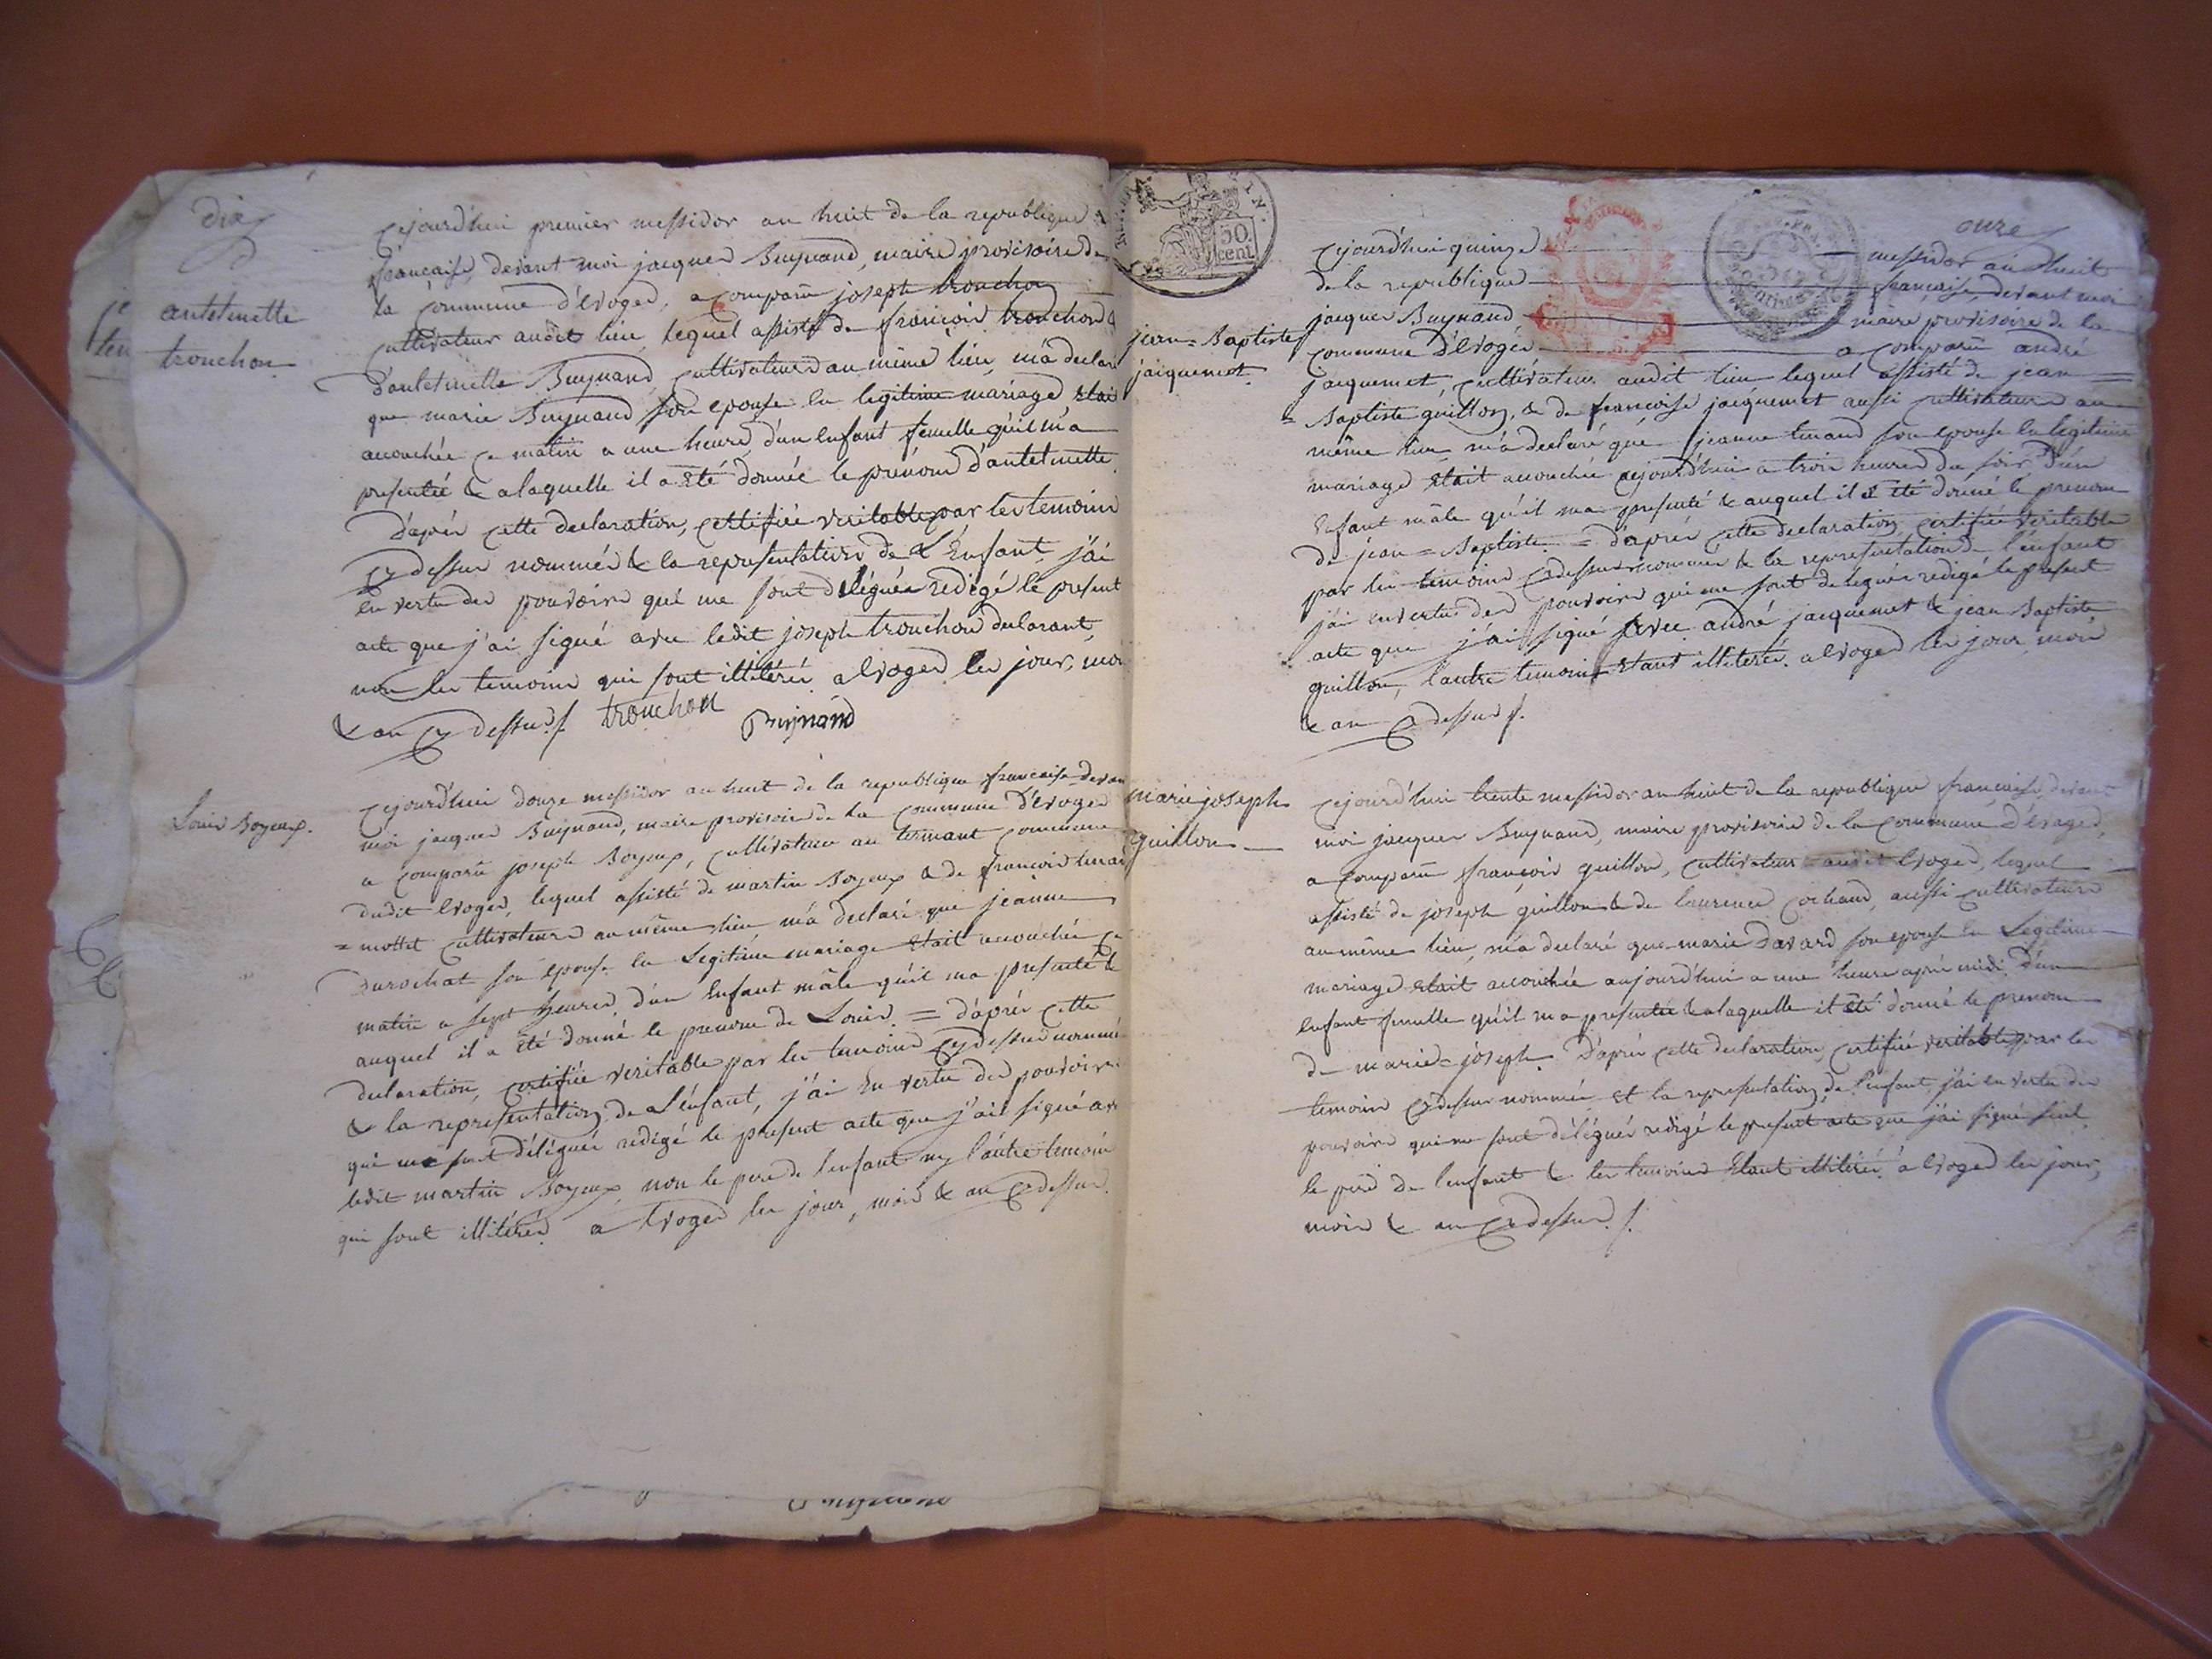 dix
antelmette
trouchon
Cejourd'hui premier messidor an huit de la republique
francaise, devant moi jacques Buynand, maire provisoire de
la Commune d'Evoges, a comparu joseph trouchon
cultivateur audit lieu, lequel assisté de francois trouchon &
d'antelmette Buynand, cultivateurs au même lieu, m'a declaré
que marie Buynand son epouse en legitime mariage, etait
accouchée ce matin a une heure, d'un enfant femelle qu'il m'a
presentée & a laquelle il a été donnée le prénom d'antelmette.
D'après cette declaration, certifiée veritable par les temoins
cy dessus nommés & la representation de L'Enfant, j'ai
en vertu des pouvoirs qui me sont délégués redigé le present
acte que j'ai signé avec ledit joseph trouchon declarant,
non les temoins qui sont illitérés a Evoges les jour, mois
& an cy dessus ./. trouchon
Buynand
Louis Boyeux.
Cejourd'hui douze messidor an huit de la republique francaise devant
moi jacques Buynand, maire provisoire de la Commune d'Evoges
a comparu joseph Boyeux, cultivateur au commune
dudit Evoges, lequel assisté de martin Boyeux & de francois
= mottet cultivateurs au même lieu m'a declaré que jeanne
Durochat son epouse en Legitime mariage etait accouchée ce
matin a sept heures, d'un Enfant mâle qu'il ma presenté &
auquel il a été donné le prenom de Louis. = d'après cette
declaration, certifiée veritable par les temoins cy dessus nommés
& la representation de L'enfant, j'ai En vertu des pouvoirs
qui me sont délégués redigé le present acte que j'ai signé avec
ledit martin Boyeux, non le pere de l'enfant ny l'autre temoin
qui sont illitérés. a Evoges les jour, mois & an cy dessus.
50.
cent.
onze
jean = Baptiste
jacquemet.
Cejourd'hui quinze messidor an huit
de la republique francaise, devant moi
jacques Buynand maire provisoire de la
Commune d'Evoges a comparu andré
jacquemet, cultivateur audit lieu lequel assisté de jean =
= Baptiste guillon, & de francoise jacquemet aussi cultivateurs au
même lieu m'a declaré que jeanne son epouse en legitime
mariage etait accouchée cejourd'hui a trois heures du soir d'un
Enfant mâle qu'il ma presenté & auquel il a été donné le prenom
de jean = Baptiste. = d'après cette declaration, certifiée veritable
par les temoins cy dessus nommés & la representation de l'enfant
j'ai en vertu des pouvoirs qui me sont délégués redigé le present
acte que j'ai signé avec andré jacquemet & jean Baptiste
guillon, l'autre temoin etant illiterée. a Evoges les jour, mois
& an cy dessus ./.
marie joseph
guillon
Cejourd'hui trente messidor an huit de la republique francaise, devant
moi jacques Buynand, maire provisoire de la Commune d'Evoges,
a comparu francois guillon, cultivateur audit Evoges, lequel
assisté de joseph guillon & de laurence Cochand, aussi cultivateurs
au même lieu, m'a declaré que marie Davard son epouse en Legitime
mariage etait accouchée aujourd'hui a une heure après midi, d'un
enfant femelle qu'il ma presentée & a laquelle il été donné le prenom
de marie = joseph. D'après cette declaration, certifiée veritable par les
temoins cy dessus nommés et la representation de l'enfant, j'ai en vertu des
pouvoirs qui me sont délégués redigé le present acte que j'ai signé seul
le pere de l'enfant & les temoins etant illitérés. a Evoges les jour,
mois & an cy dessus ./.